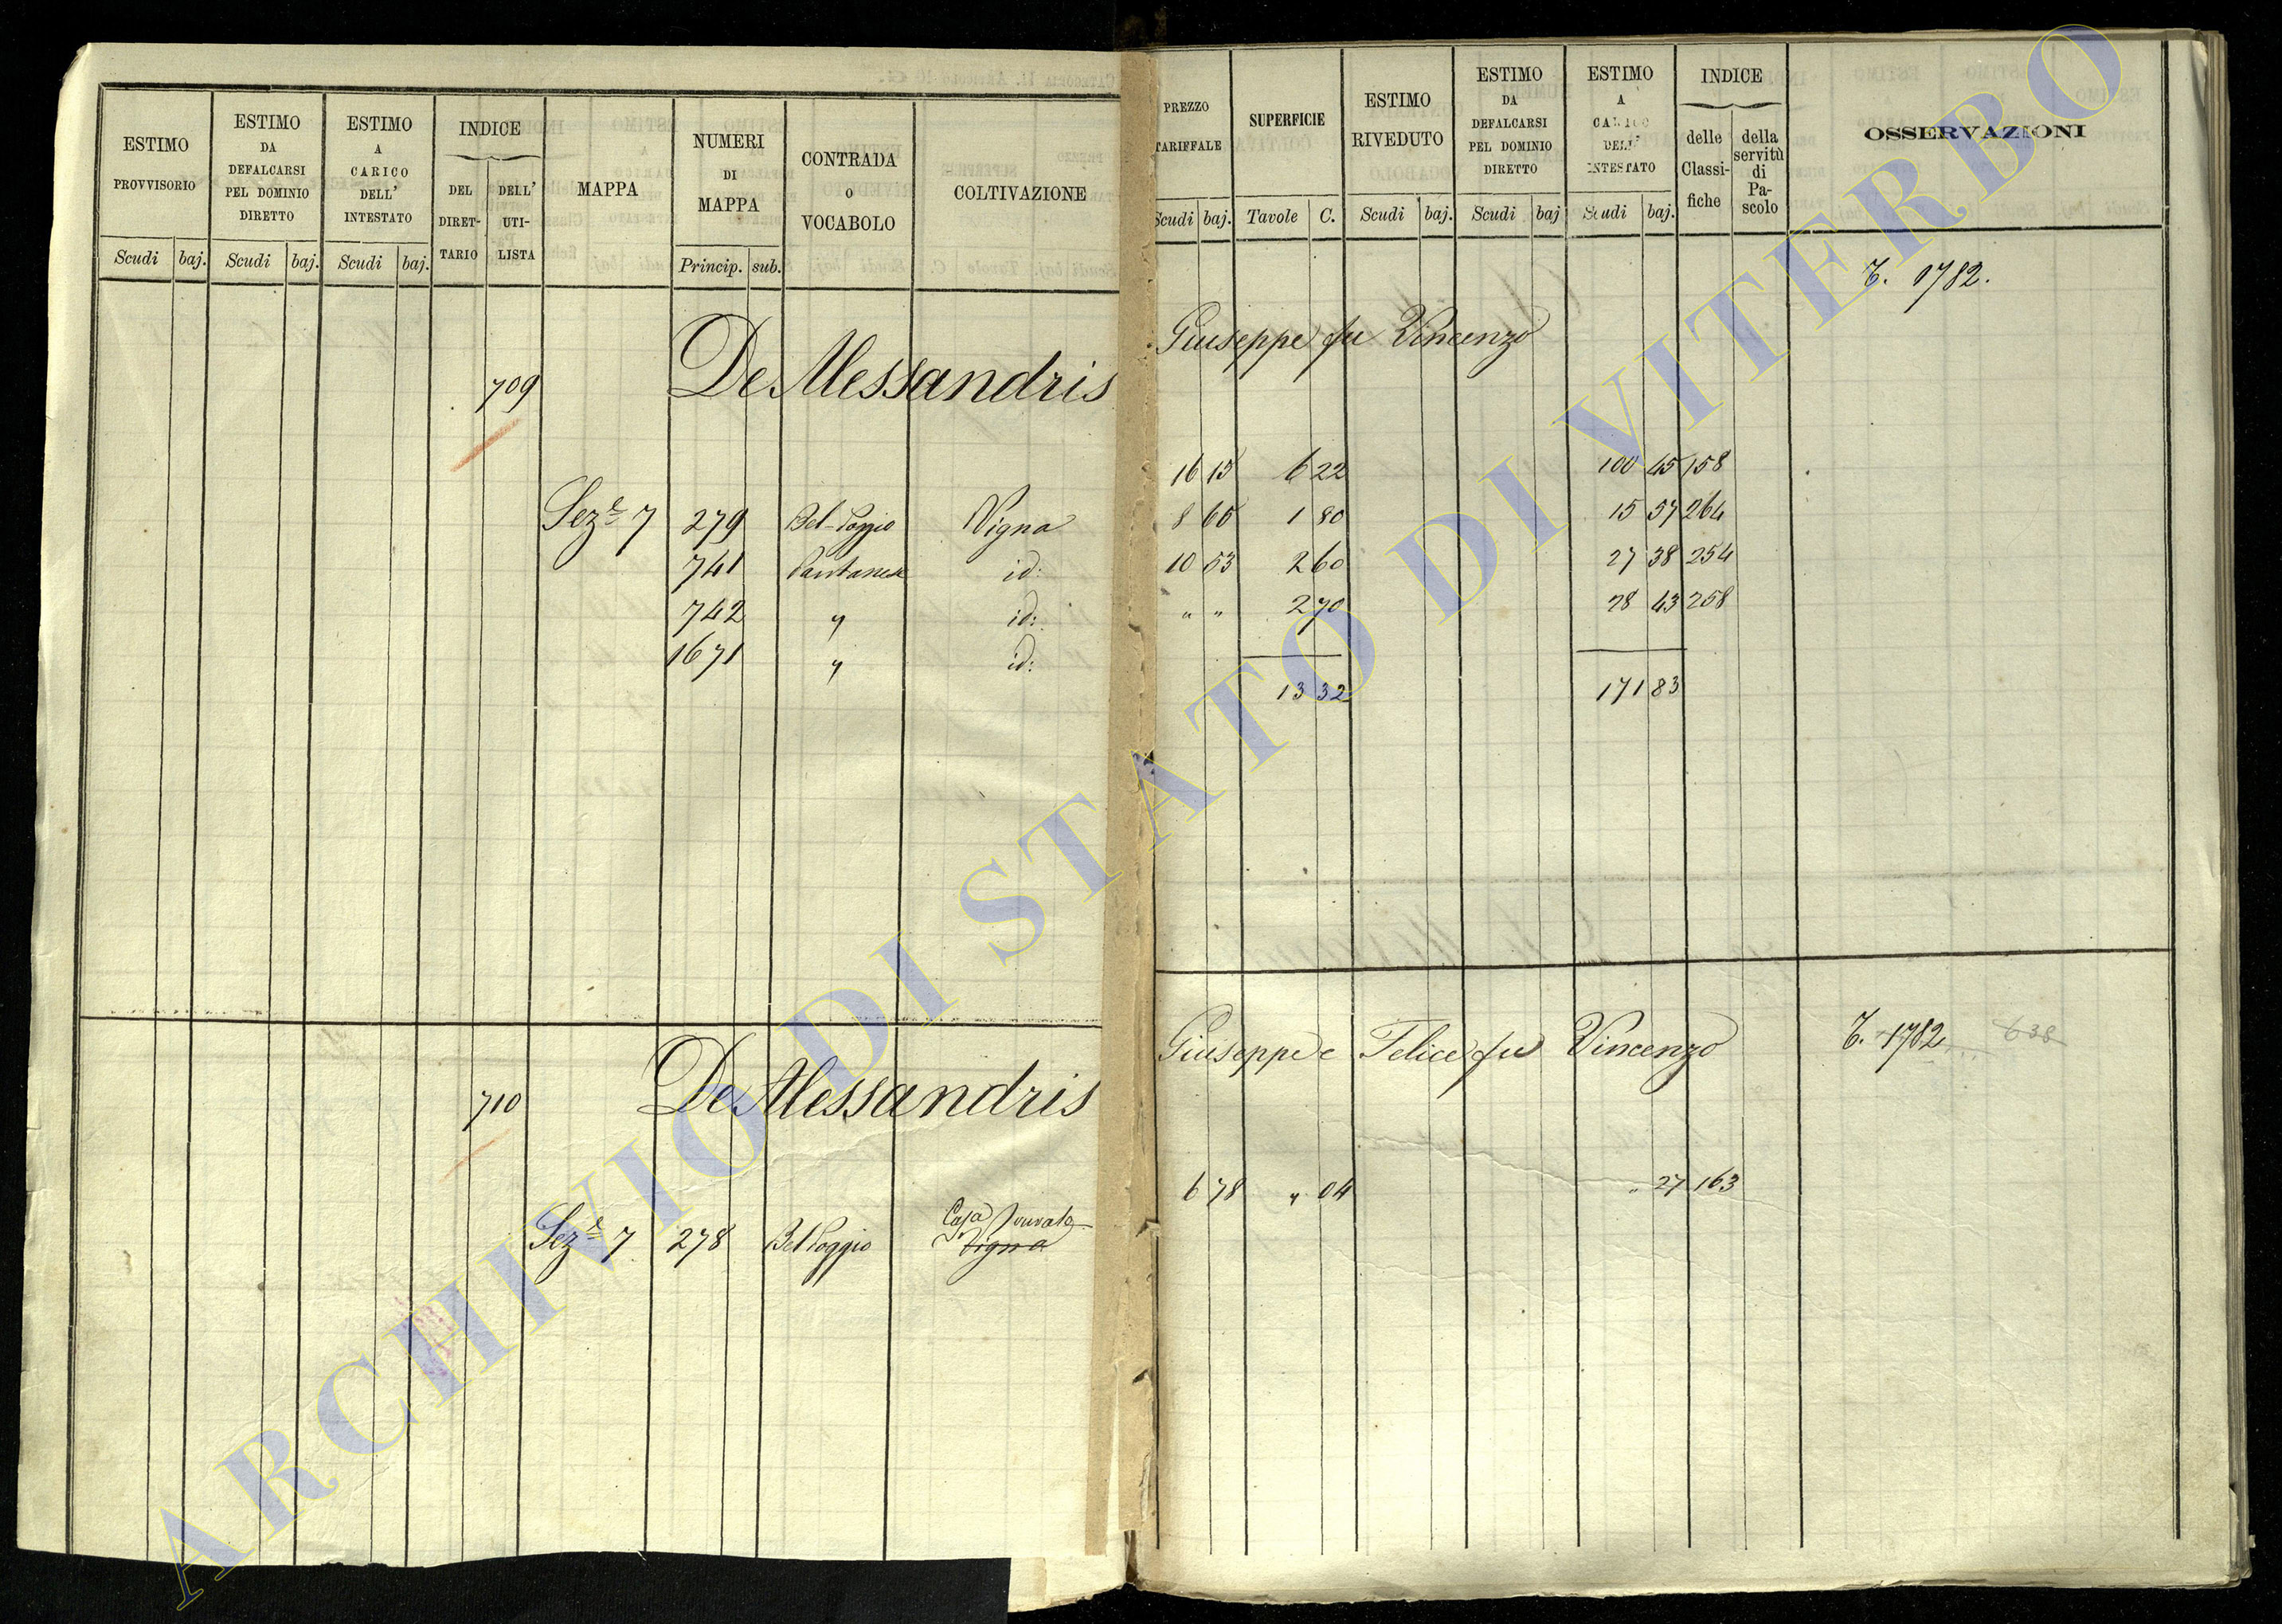 ESTIMO PROVVISORIO Scudi baj.
ESTIMO DA DEFALCARSI PEL DOMINIO DIRETTO Scudi baj.
ESTIMO A CARICO DELL' INTESTATO Scudi baj.
INDICE DEL DIRET-TARIO DELL' UTI-LISTA
MAPPA
NUMERI DI MAPPA Princip. sub.
CONTRADA O VOCABOLO
COLTIVAZIONE
PREZZO TARIFFALE Scudi baj.
SUPERFICIE Tavole C.
ESTIMO RIVEDUTO Scudi baj.
ESTIMO DA DEFALCARSI PEL DOMINIO DIRETTO Scudi baj
ESTIMO A CARICO DELL' INTESTATO Scudi baj.
INDICE delle Classi-fiche della servitù di Pa-scolo
OSSERVAZIONI
T. 1782.
709 De Alessandris Giuseppe fu Vincenzo
Sez.e 7 279 Bel-Poggio Vigna 16 15 6 22 100 45 158
741 Pantanesi id: 8 65 1 80 15 57 264
742 " id: 10 53 2 60 27 38 254
1671 " id: " " 2 70 28 43 258
13 32 171 83
710 De Alessandris Giuseppe e Felice fu Vincenzo T. 1782 638
Casa
Sez.e 7 278 Bel Poggio Vigna 6 78 " 04 " 27 163
ARCHIVIO DI STATO DI VITERBO